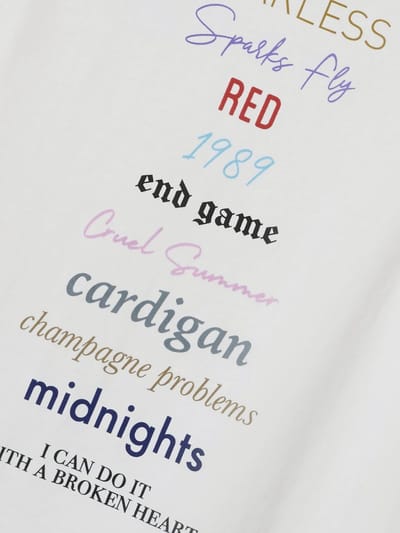 RLESS
Sparks Fly
RED
1989
end game
Cruel Summer
cardigan
champagne problems
midnights
I CAN DO IT
ITH A BROKEN HEART